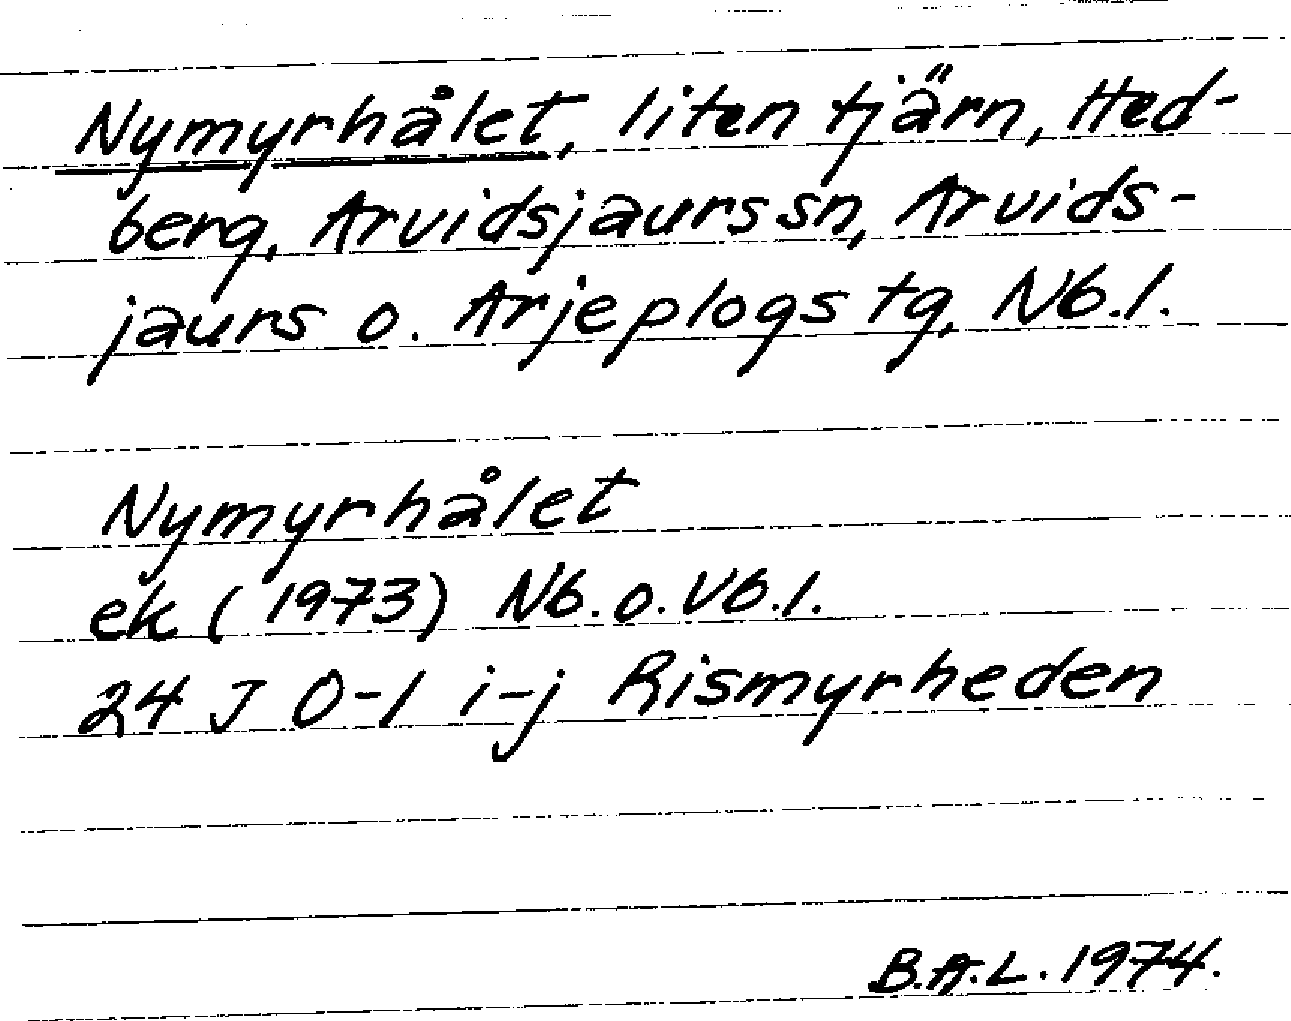 Nymyrhålet, liten tjärn, Hed-
berg, Arvidsjaurs sn, Arvids-
jaurs o. Arjeplogs tg, Nb.l.
Nymyrhålet
ek (1973) Nb.o.Vb.l.
24 J 0-1 i-j Rismyrheden
B.A.L. 1974.